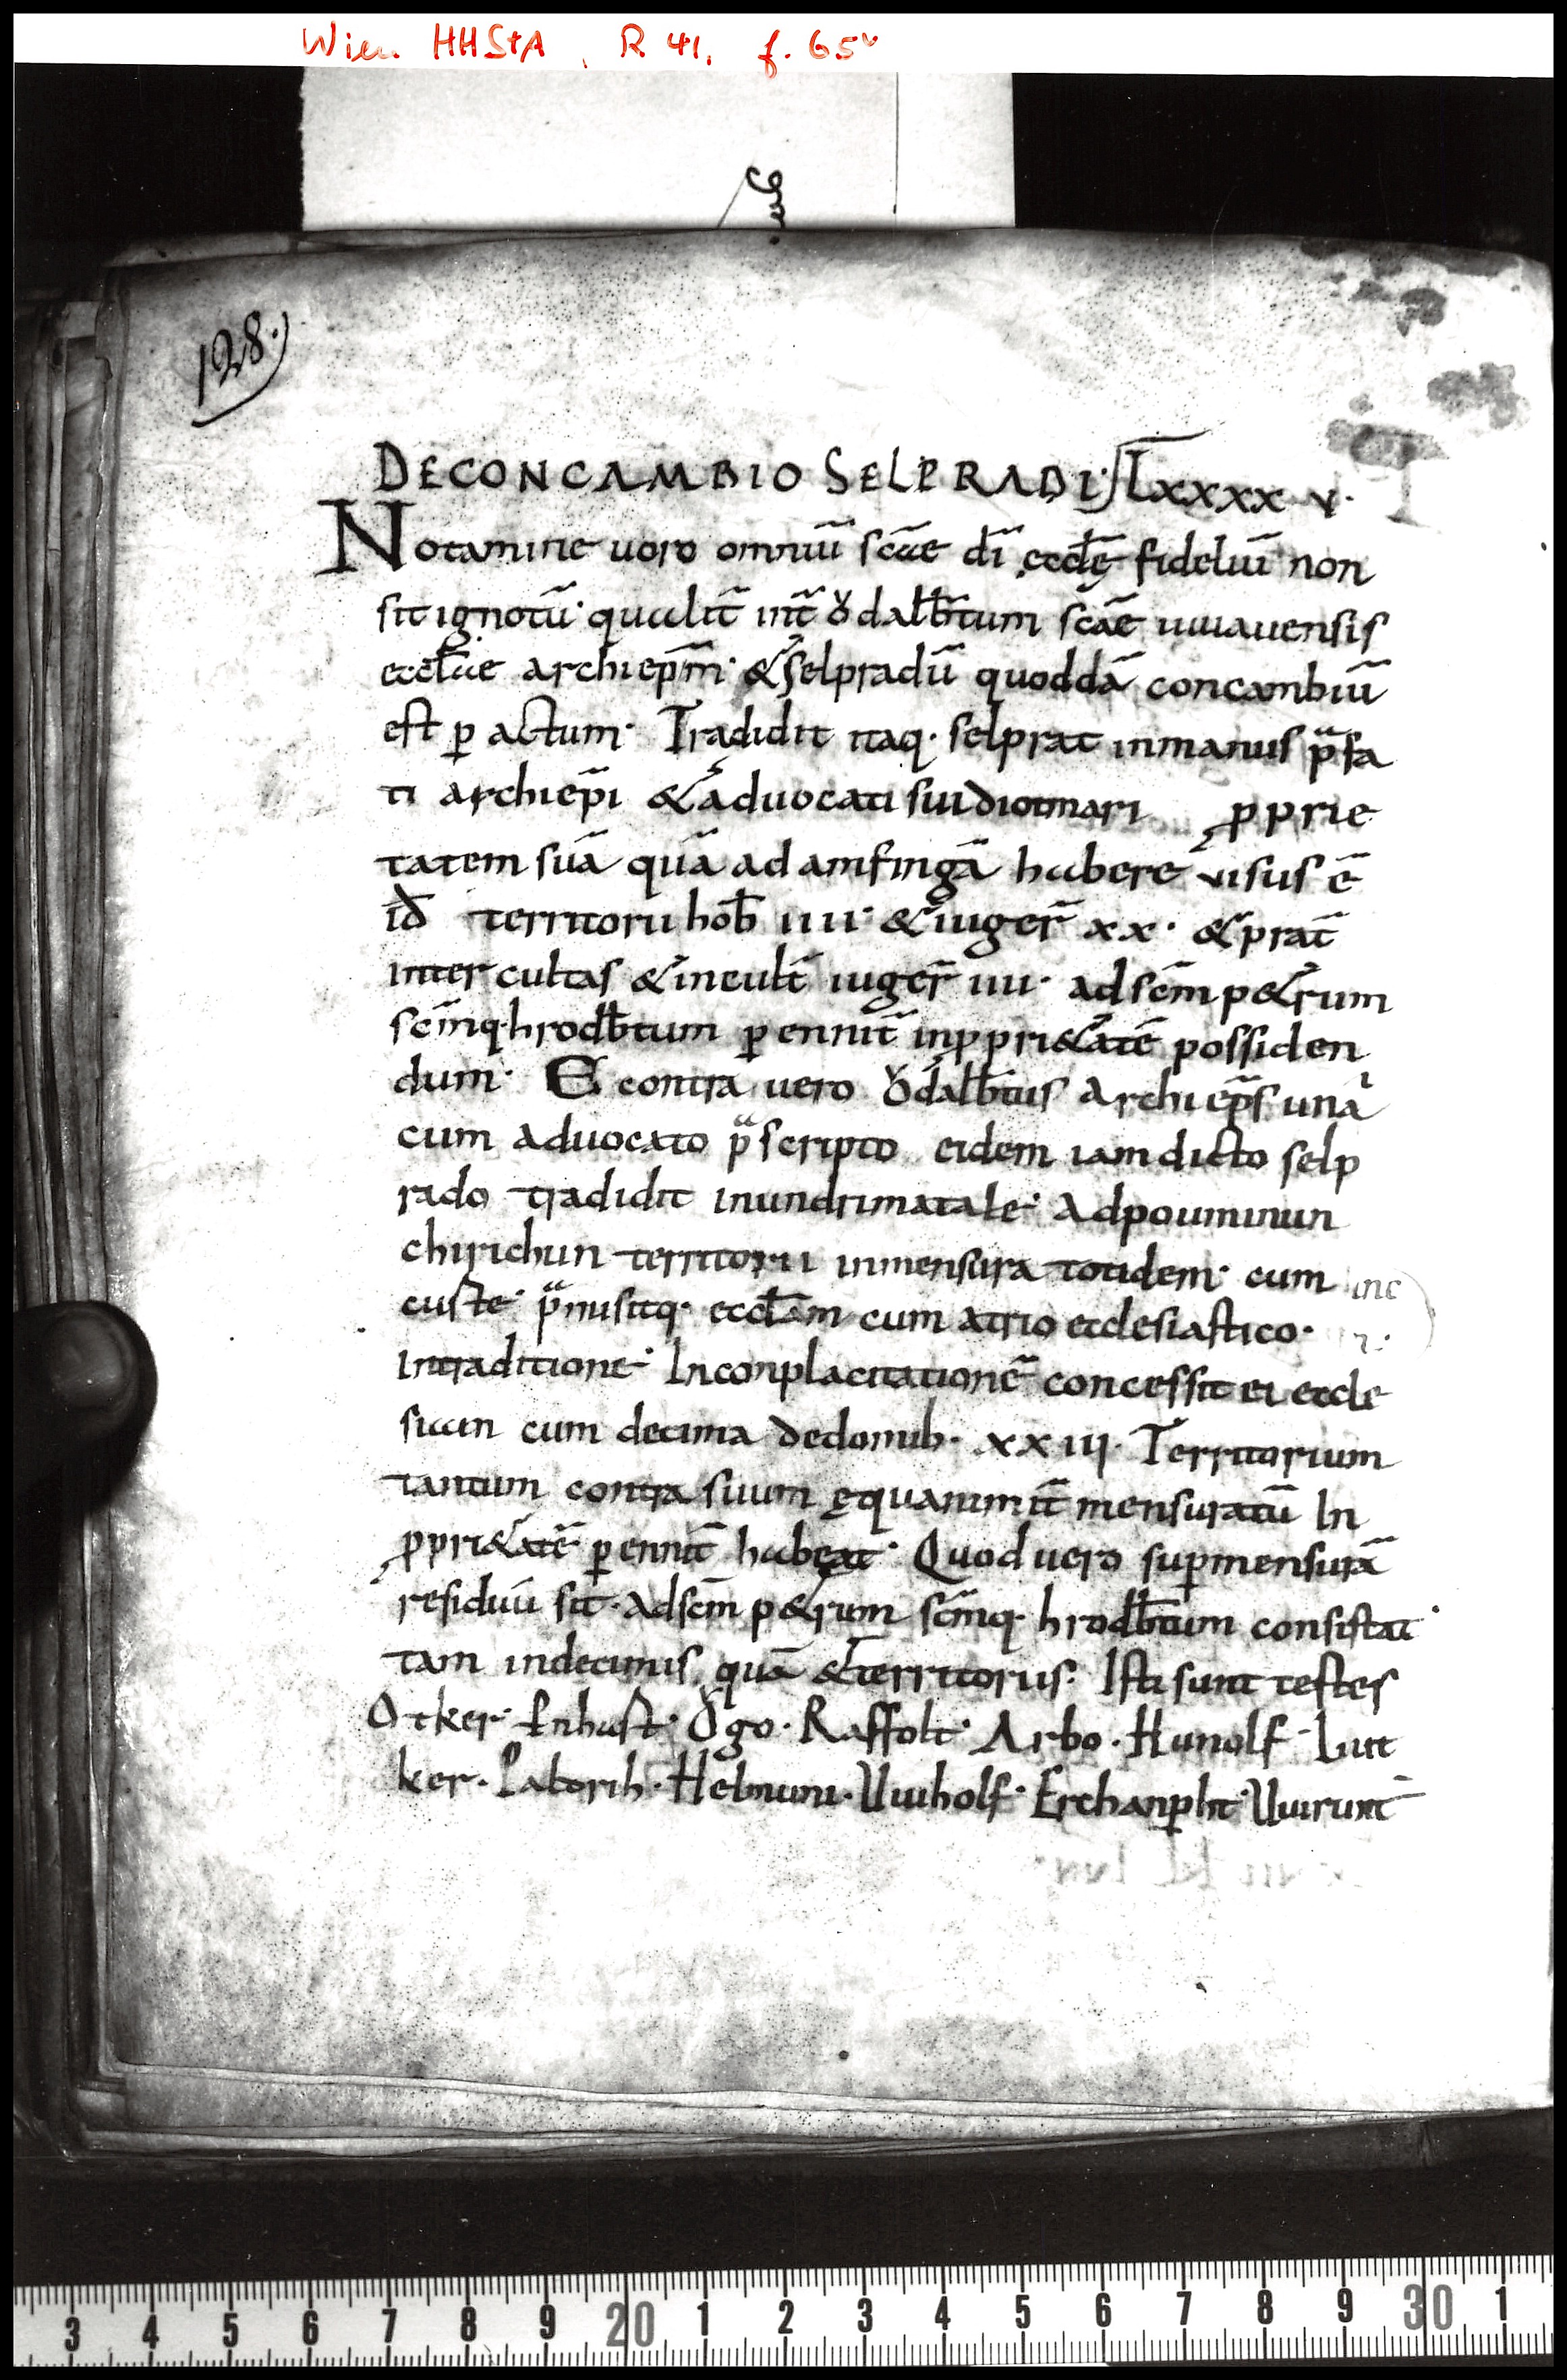 Wien HHStA, R 41, f. 65v
128.
DECONCAMBIO SELPRADI· Lxxxx v·
Notamine uoro omniū scāe dī ęcclę̄ fideliū non
sit ignotū· qualit̄ int̄ ȣdalb̄tum scāe iuuauensis
eccłae archiep̄m· & selpradū quoddā concambiū
est ꝑ actum· Tradidit itaq· selprat inmanus p̄fa
ti archiep̄i & aduocati sui diotmari ꝓprie
tatem suā quā ad amfingā habere uisus ē
id̄ territorii hob̄ iiii· & iuger̄ xx· & prat̄
inter cultas & incult̄ iuger̄ iiii· ad scm̄ p&rum
scm̄q· hrodb̄tum ꝑennit̄ inꝓpri&atē possiden
dum· E contra uero ȣdalb̄tus archiep̄s una
cum aduocato p̄scripto eidem iamdicto selp
rado tradidit inundrimatale· adpouminun
chirichun territorii inmensura totidem· cum
custe· p̄misitq· eccłam cum atrio ecclesiastico·
intraditione· Inconplacitationē concessit ei eccle
siam cum decima dedomib· xxiii· Territorium
tantum contra suum ęquanimit̄ mensuratū In
ꝓpri&atē ꝑennit̄ habeat· Quod uero suꝑmensurā
residuū sit· adscm̄ p&rum scm̄q· hrodb̄tum consistat·
tam indecimis quā & territoriis· Isti sunt testes
Otker· Enhast· Ogo· Raffolt· Arbo· Hunolf· Liut
ker· Paborih· Helmuni· Uuiholf· Erchanꝑht· Uuirunt